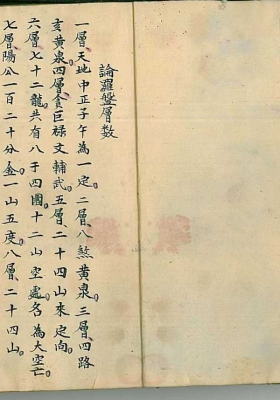 論羅盤層数
一層天地中正子午為一定。二層八煞黄泉。三層四路
亥黄泉。四層貪巨禄文輔武。五層二十四山來定向。
六層七十二龍。共有八于四圍十二山空處。名為大空亡。
七層陽公一百二十分金。一山五度。八層二十四山。